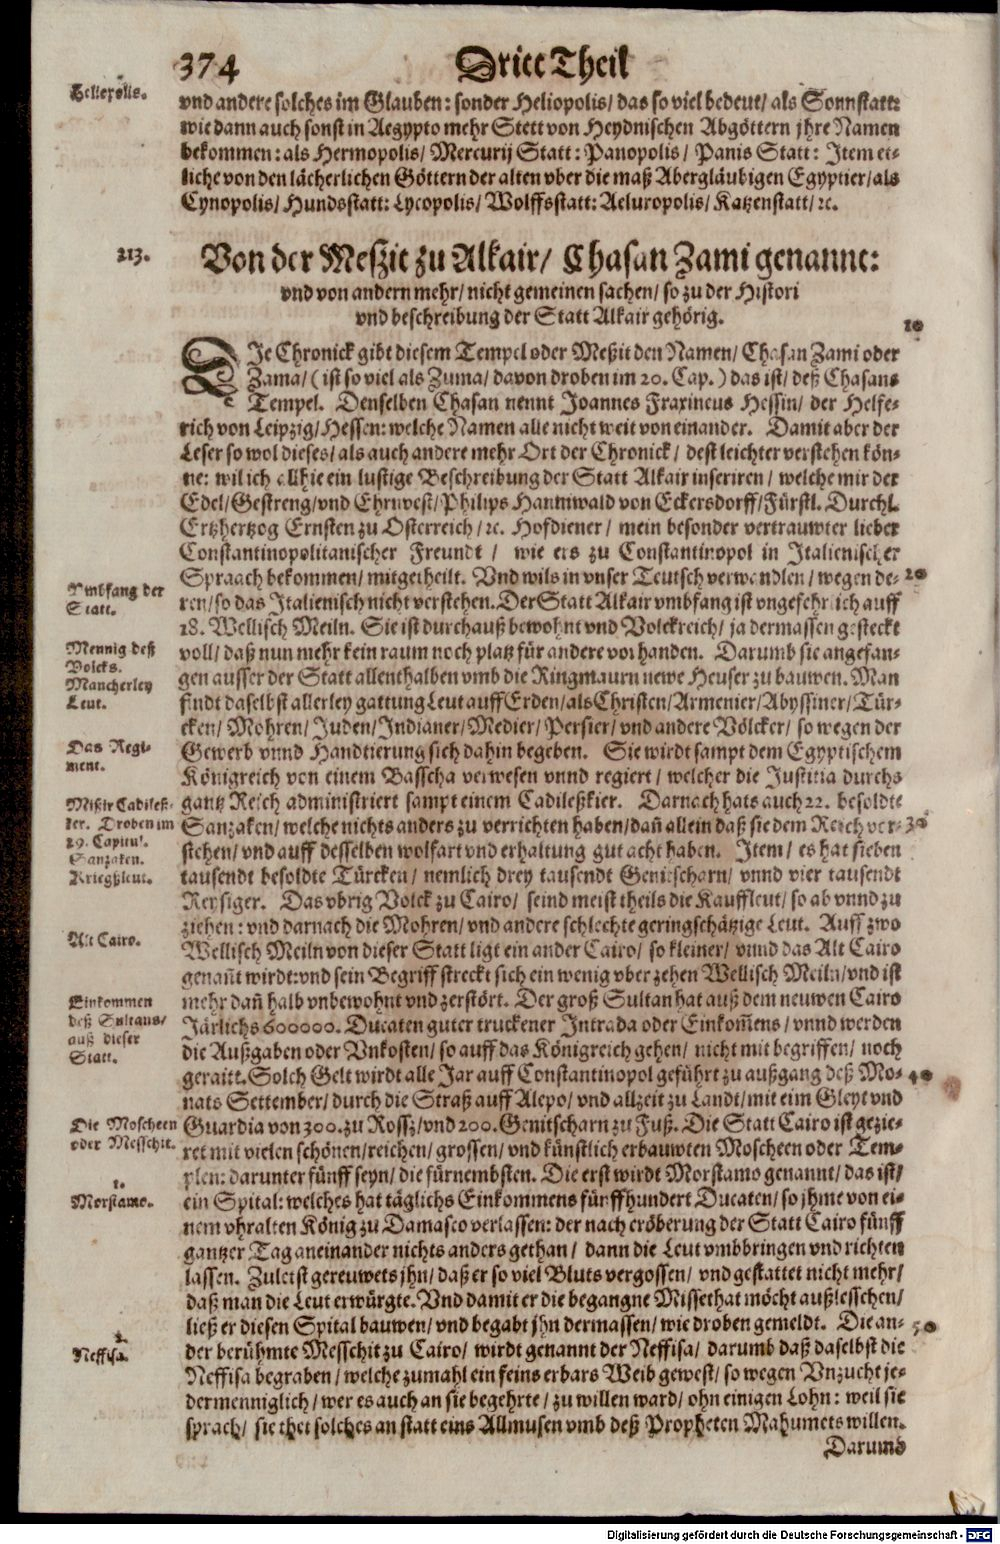 374 Dritt Theil
Heliopolis.
vnd andere solches im Glauben: sonder Heliopolis/ das so viel bedeut/ als Sonnstatt:
wie dann auch sonst in Aegypto mehr Stett von Heydnischen Abgöttern jhre Namen
bekommen: als Hermopolis/ Mercurij Statt: Panopolis/ Panis Statt: Item et-
liche von den lächerlichen Göttern der alten vber die maß Abergläubigen Egyptier/ als
Cynopolis/ Hundsstatt: Lycopolis/ Wolffsstatt: Aeluropolis/ Katzenstatt/ ꝛc.
213.
Von der Meszit zu Alkair/ Chasan Zami genannt:
vnd von andern mehr/ nicht gemeinen sachen/ so zu der Histori
vnd beschreibung der Statt Alkair gehörig.
10
DIe Chronick gibt diesem Tempel oder Meßit den Namen/ Chasan Zami oder
Zama/ (ist so viel als Zuma/ davon droben im 20. Cap.) das ist/ deß Chasans
Tempel. Denselben Chasan nennt Joannes Fraxineus Hessin/ der Helfe-
rich von Leipzig/ Hessen: welche Namen alle nicht weit von einander. Damit aber der
Leser so wol dieses/ als auch andere mehr Ort der Chronick/ dest leichter verstehen kön-
ne: wil ich allhie ein lustige Beschreibung der Statt Alkair inseriren/ welche mir der
Edel/ Gestreng/ vnd Ehrnvest/ Philips Hannwald von Eckersdorff/ Fürstl. Durchl.
Ertzhertzog Ernsten zu Osterreich/ ꝛc. Hofdiener/ mein besonder vertrauwter lieber
Constantinopolitanischer Freundt/ wie ers zu Constantinopel in Italienischer
Spraach bekommen/ mitgetheilt. Vnd wils in vnser Teutsch verwandlen/ wegen de- 20
Vmbfang der
Statt.
ren/ so das Italienisch nicht verstehen. Der Statt Alkair vmbfang ist vngefehrlich auff
18. Wellisch Meiln. Sie ist durchauß bewohnt vnd Volckreich/ ja dermassen gesteckt
Mennig deß
Volcks.
voll/ daß nun mehr kein raum noch platz für andere vorhanden. Darumb sie angefan-
gen ausser der Statt allenthalben vmb die Ringmaurn newe Heuser zu bauwen. Man
Mancherley
Leut.
findt daselbst allerley gattung Leut auff Erden/ als Christen/ Armenier/ Abyssiner/ Tür-
cken/ Mohren/ Juden/ Indianer/ Medier/ Persier/ vnd andere Völcker/ so wegen der
Das Regi-
ment.
Gewerb vnnd Handtierung sich dahin begeben. Sie wirdt sampt dem Egyptischem
Königreich von einem Basscha verwesen vnnd regiert/ welcher die Justitia durchs
Mißir Cadileß-
ker. Droben im
29. Capitul.
gantz Reich administriert sampt einem Cadileßkier. Darnach hats auch 22. besoldte
Sanzaken/ welche nichts anders zu verrichten haben/ dañ allein daß sie dem Reich vor- 30
Sanzaken.
stehen/ vnd auff desselben wolfart vnd erhaltung gut acht haben. Item/ es hat sieben
Kriegßleut.
tausendt besoldte Türcken/ nemlich drey tausendt Genitscharn/ vnnd vier tausendt
Reysiger. Das vbrig Volck zu Cairo/ seind meist theils die Kauffleut/ so ab vnnd zu
ziehen: vnd darnach die Mohren/ vnd andere schlechte geringschätzige Leut. Auff zwo
Alt Cairo.
Wellisch Meiln von dieser Statt ligt ein ander Cairo/ so kleiner/ vnnd das Alt Cairo
genañt wirdt: vnd sein Begriff streckt sich ein wenig vber zehen Wellisch Meiln/ vnd ist
Einkommen
deß Sultans/
auß dieser
Statt.
mehr dañ halb vnbewohnt vnd zerstört. Der groß Sultan hat auß dem neuwen Cairo
Järlichs 600000. Ducaten guter truckener Intrada oder Einkom̃ens/ vnnd werden
die Außgaben oder Vnkosten/ so auff das Königreich gehen/ nicht mit begriffen/ noch
geraitt. Solch Gelt wirdt alle Jar auff Constantinopol geführt zu außgang deß Mo- 40
nats Settember/ durch die Straß auff Alepo/ vnd allzeit zu Landt/ mit eim Gleyt vnd
Die Moscheen
oder Messchit.
Guardia von 300. zu Rossz/ vnd 200. Genitscharn zu Fuß. Die Statt Cairo ist gezie-
ret mit vielen schönen/ reichen/ grossen/ vnd künstlich erbauwten Moscheen oder Tem-
plen: darunter fünff seyn/ die fürnembsten. Die erst wirdt Morstamo genannt/ das ist/
1.
Morstamo.
ein Spital: welches hat täglichs Einkommens fünffhundert Ducaten/ so jhme von ei-
nem vhralten König zu Damasco verlassen: der nach eröberung der Statt Cairo fünff
gantzer Tag aneinander nichts anders gethan/ dann die Leut vmbbringen vnd richten
lassen. Zuletst gereuwets jhn/ daß er so viel Bluts vergossen/ vnd gestattet nicht mehr/
daß man die Leut erwürgte. Vnd damit er die begangne Missethat möcht außlesschen/
ließ er diesen Spital bauwen/ vnd begabt jhn dermassen/ wie droben gemeldt. Die an- 50
2.
Neffisa.
der berühmte Messchit zu Cairo/ wirdt genannt der Neffisa/ darumb daß daselbst die
Neffisa begraben/ welche zumahl ein feins erbars Weib gewest/ so wegen Vnzucht je-
dermenniglich/ wer es auch an sie begehrte/ zu willen ward/ ohn einigen Lohn: weil sie
sprach/ sie thet solches an statt eins Allmusen vmb deß Propheten Mahumets willen.
Darumb
Digitalisierung gefördert durch die Deutsche Forschungsgemeinschaft - DFG